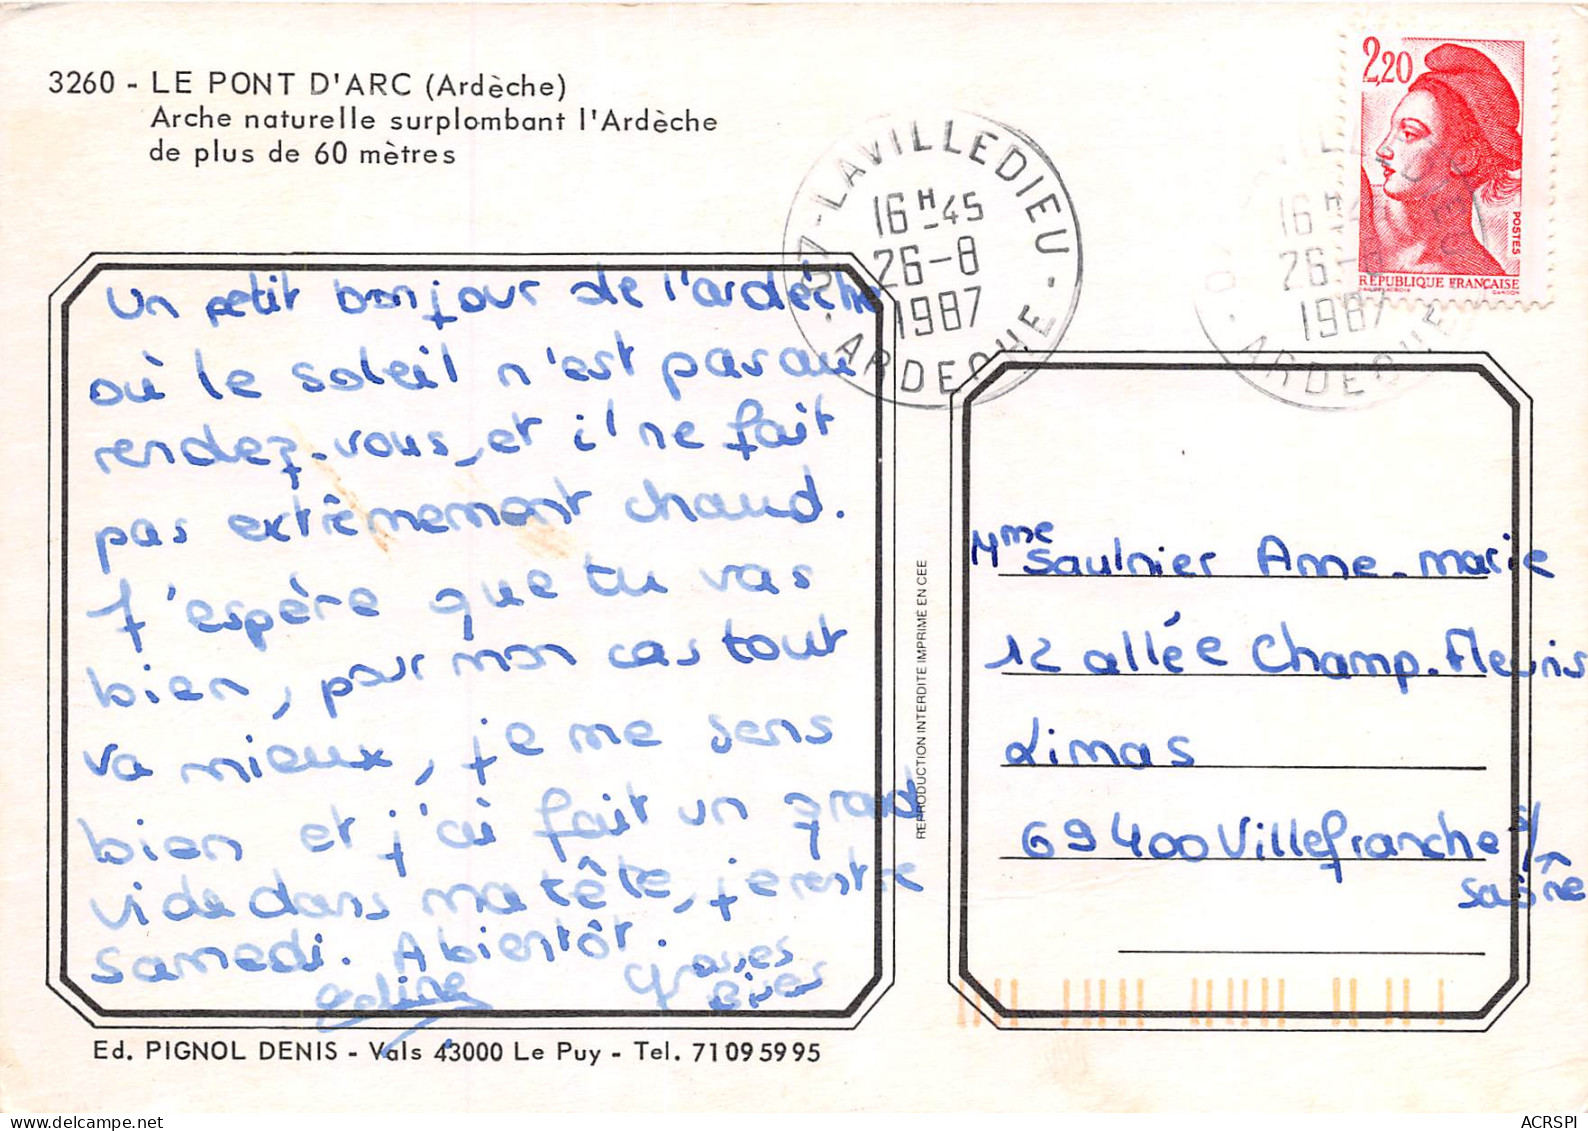 3260 - LE PONT D'ARC (Ardèche)
Arche naturelle surplombant l'Ardèche
de plus de 60 mètres
07 - LAVILLEDIEU -
16 H - 45
26 - 8
1987
- ARDECHE -
2,20
POSTES
REPUBLIQUE FRANÇAISE
16 H
26 - 8
1987
ARDECHE
Un petit bonjour de l'ardèche
où le soleil n'est pas au
rendez-vous, et il ne fait
pas extrêmement chaud.
J'espère que tu vas
bien, pour mon cas tout
va mieux, je me sens
bien et j'ai fait un grand
vide dans ma tête, je rentre
samedi. A bientôt.
grosses
Bises
REPRODUCTION INTERDITE IMPRIME EN CEE
Mme Saulnier Anne-marie
12 allée Champ-Fleuris
Limas
69400 Villefranche s/
Saône
Ed. PIGNOL DENIS - Vals 43000 Le Puy - Tel. 71095995
ACRSPI